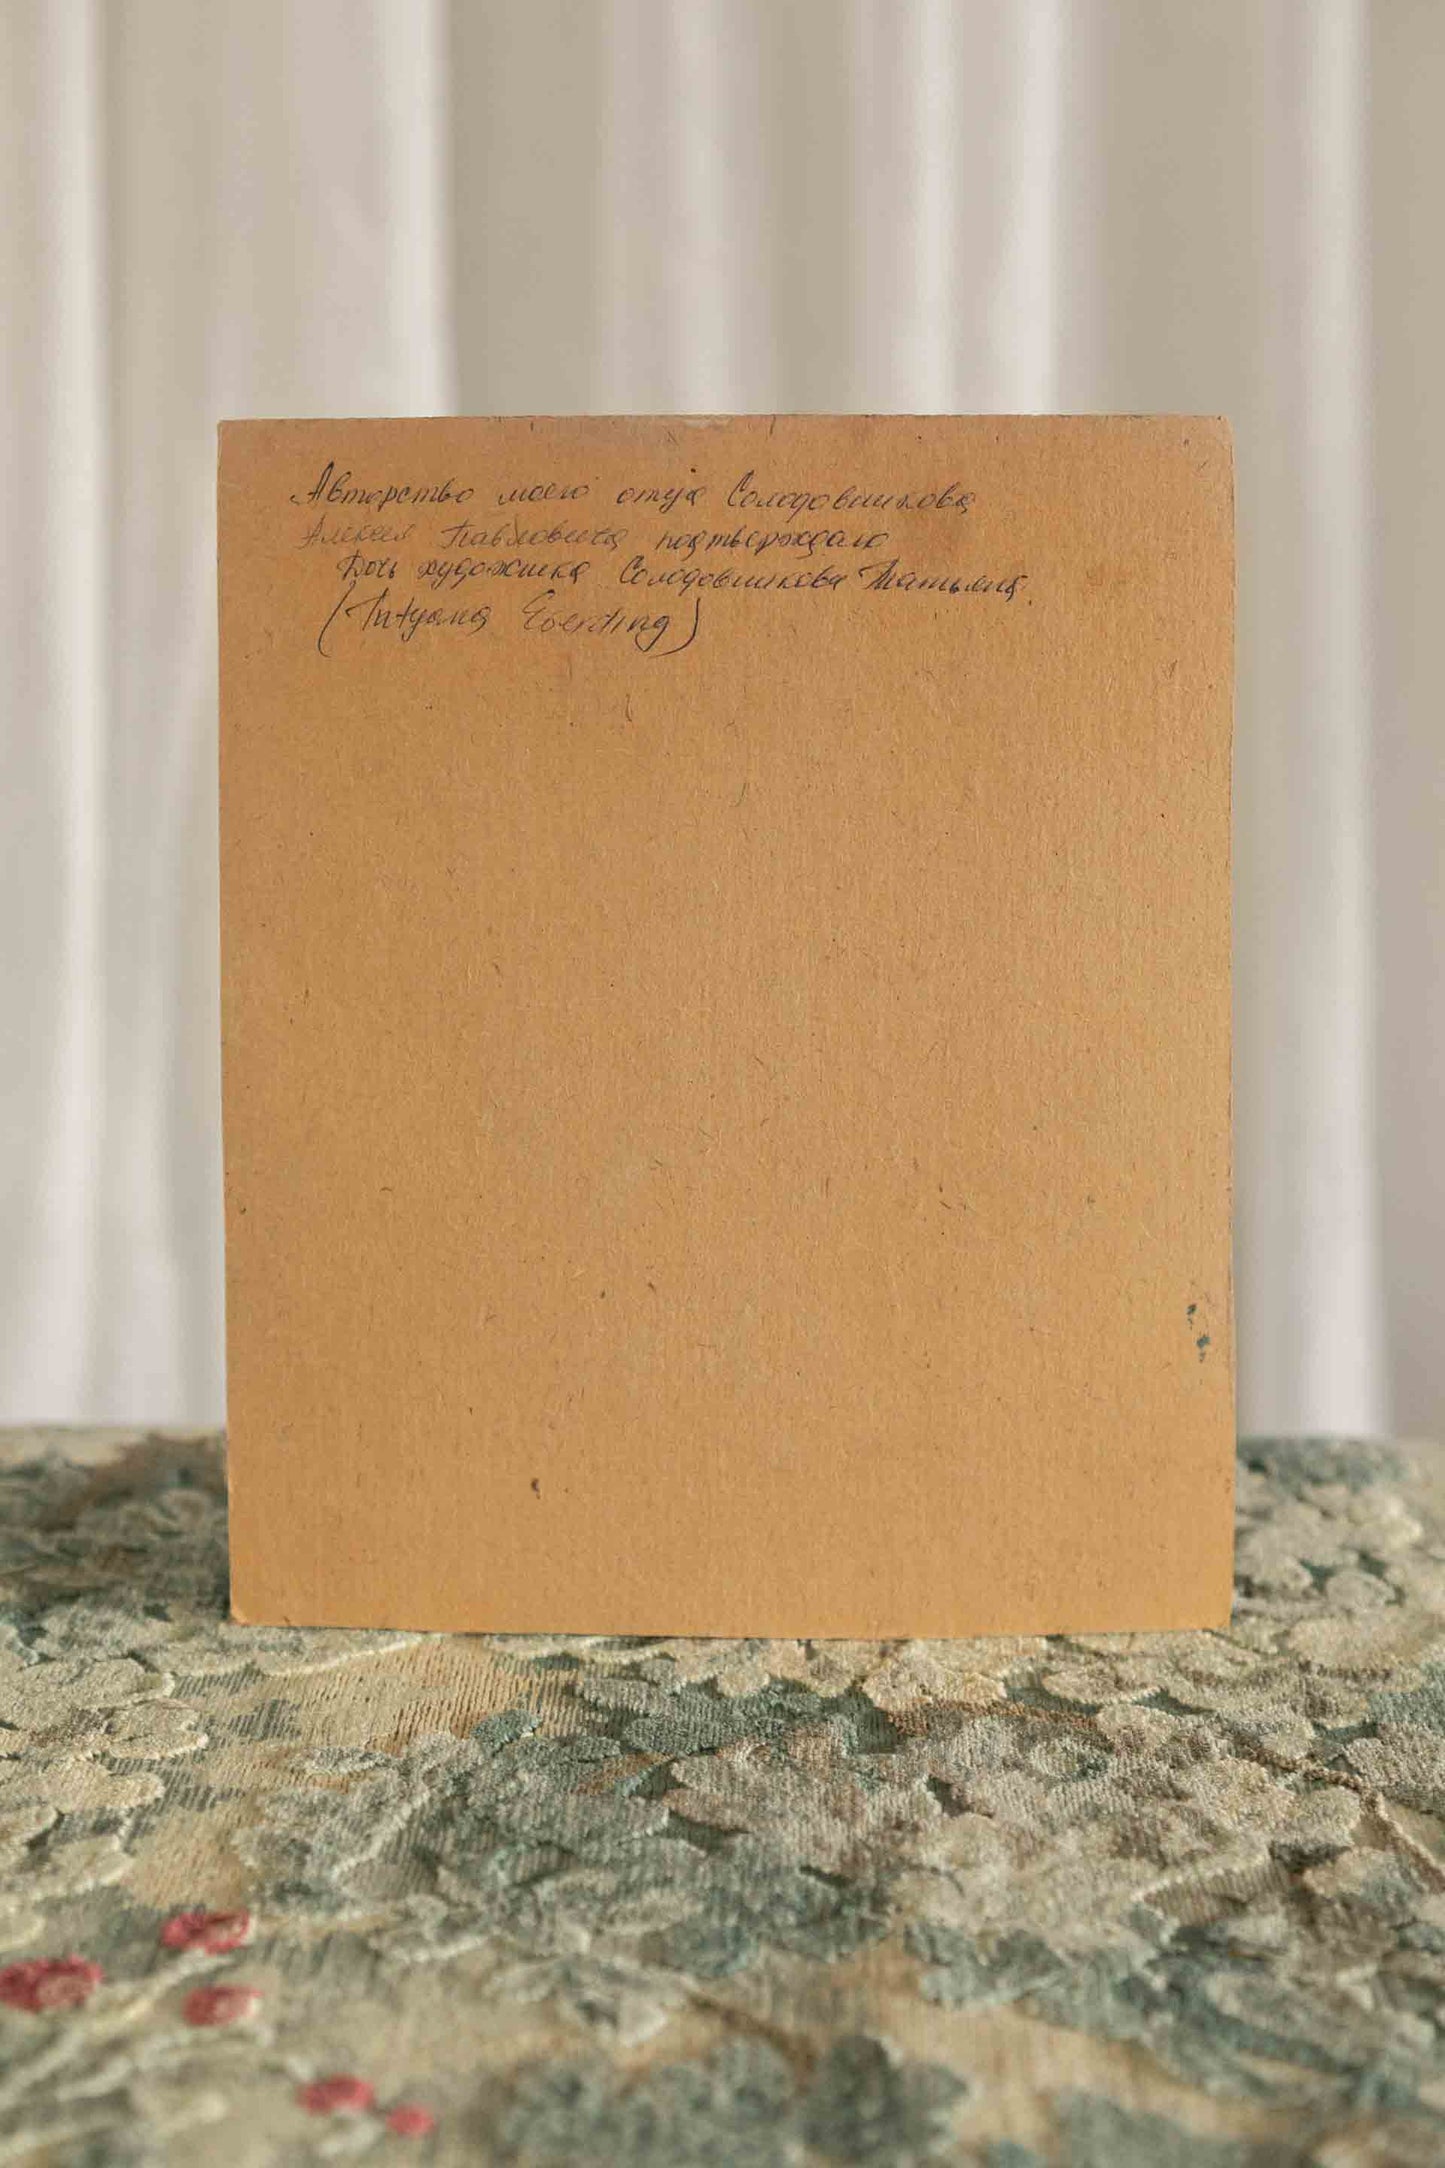 Авторство моего отца Солодовникова
Алексея Павловича подтверждаю
Дочь художника Солодовникова Татьяна.
(Tatyana